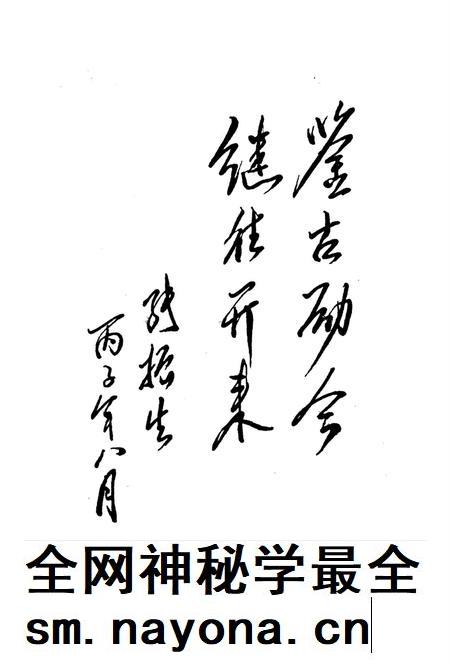 鉴古励今
继往开来
张振生
丙子年八月
全网神秘学最全
sm.nayona.cn